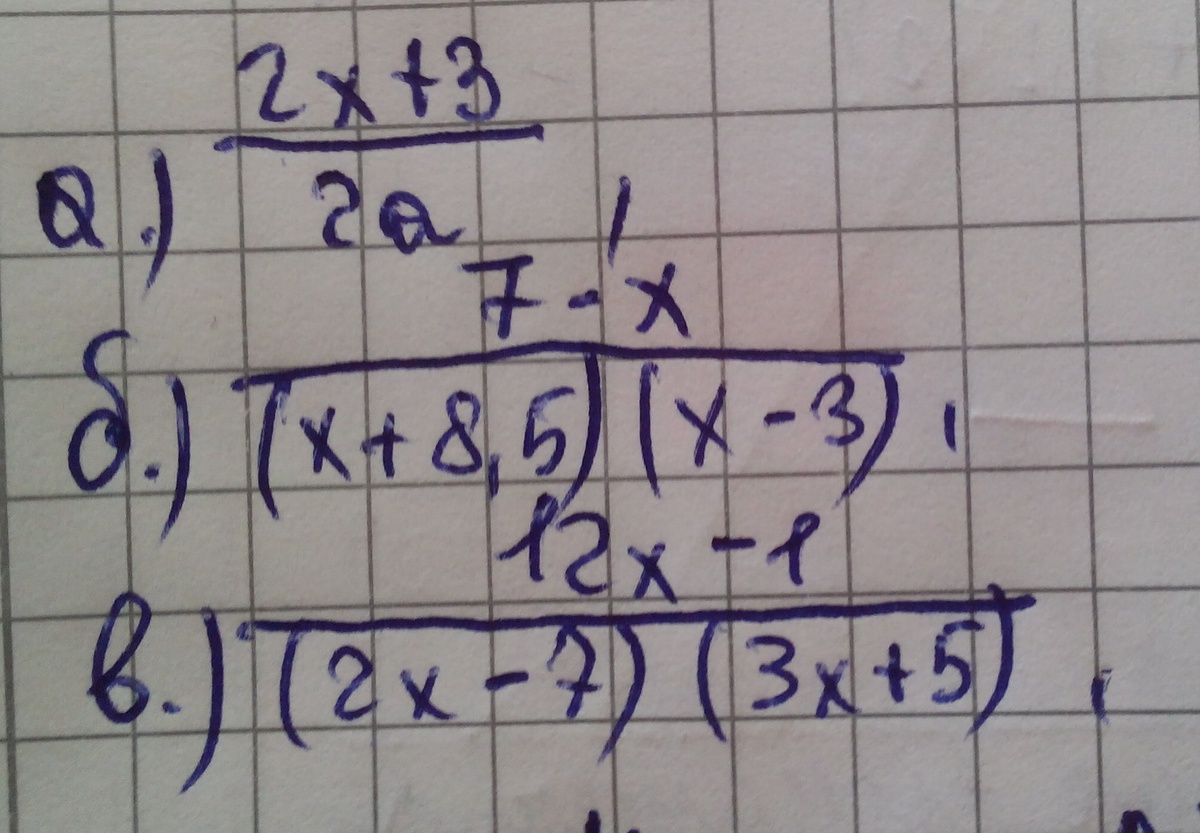 а.) (2x+3)/(2a) ,
б.) (7-x)/((x+8,5)(x-3)) ,
в.) (12x-1)/((2x-7)(3x+5)) ,